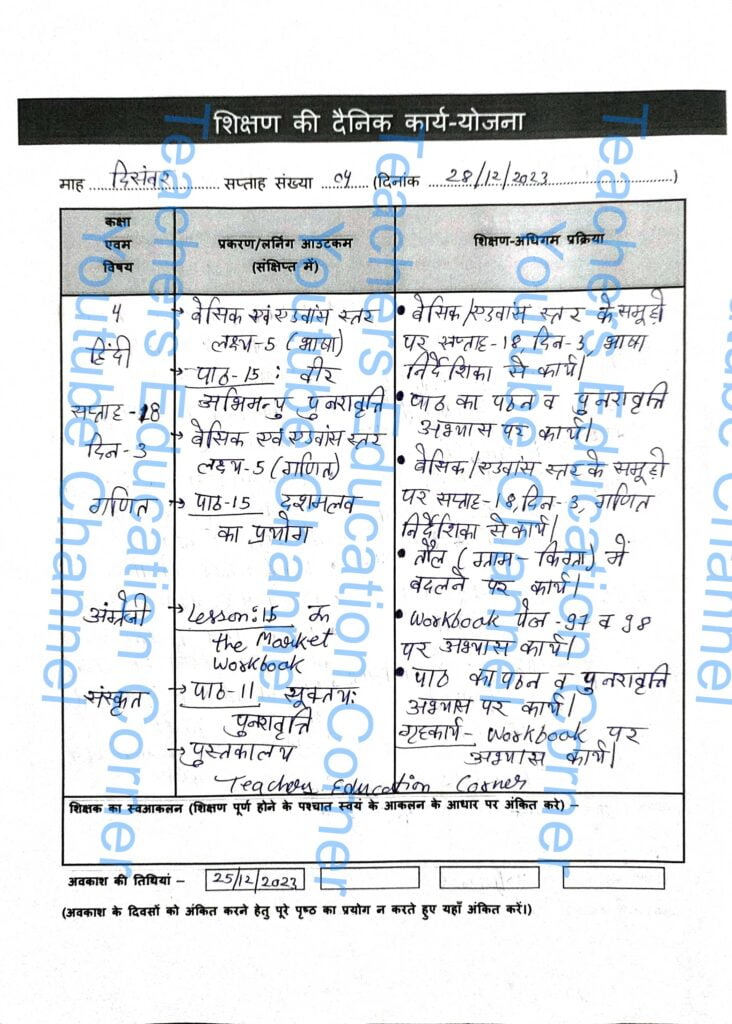 शिक्षण की दैनिक कार्य-योजना
माह दिसंबर सप्ताह संख्या 04 (दिनांक 28/12/2023)
कक्षा
एवम
विषय
प्रकरण/लर्निंग आउटकम
(संक्षिप्त में)
शिक्षण-अधिगम प्रक्रिया
4
हिंदी
सप्ताह-18
दिन-3
गणित
अंग्रेजी
संस्कृत
→ बेसिक एवं एडवांस स्तर
लक्ष्य-5 (भाषा)
→ पाठ-15: वीर
अभिमन्यु पुनरावृत्ति
→ बेसिक एवं एडवांस स्तर
लक्ष्य-5 (गणित)
→ पाठ-15 दशमलव
का प्रयोग
→ Lesson:15 In
the Market
Workbook
→ पाठ-11 सूक्तयः
पुनरावृत्ति
→ पुस्तकालय
• बेसिक/एडवांस स्तर के समूहों
पर सप्ताह-18, दिन-3, भाषा
निर्देशिका से कार्य।
• पाठ का पठन व पुनरावृत्ति
अभ्यास पर कार्य।
• बेसिक/एडवांस स्तर के समूहों
पर सप्ताह-18, दिन-3, गणित
निर्देशिका से कार्य।
• तौल (ग्राम-किग्रा) में
बदलने पर कार्य।
• Workbook पेज-97 व 98
पर अभ्यास कार्य।
• पाठ का पठन व पुनरावृत्ति
अभ्यास पर कार्य।
गृहकार्य- Workbook पर
अभ्यास कार्य।
Teachers Education Corner
शिक्षक का स्वआकलन (शिक्षण पूर्ण होने के पश्चात स्वयं के आकलन के आधार पर अंकित करे) –
अवकाश की तिथियां – 25/12/2023
(अवकाश के दिवसों को अंकित करने हेतु पूरे पृष्ठ का प्रयोग न करते हुए यहाँ अंकित करें।)
Teachers Education Corner
Youtube Channel
Teachers Education Corner
Youtube Channel
Teachers Education Corner
Youtube Channel